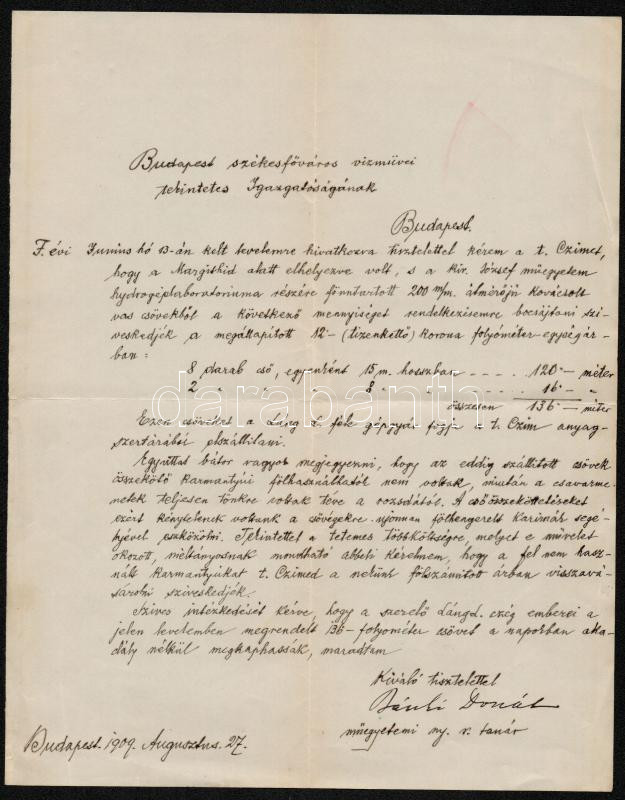 Budapest székesfőváros vizművei
tekintetes Igazgatóságának
Budapest.
F. évi Junius hó 13-án kelt levelemre hivatkozva tisztelettel kérem a t. Czimet,
hogy a Margithid alatt elhelyezve volt, s a kir. József műegyetem
hydrogéplaboratoriuma részére fönntartott 200 m/m. átmérőjű kovácsolt
vas csövekből a következő mennyiséget rendelkezésemre bocsájtani szi-
veskedjék a megállapított 12·- (tizenkettő) korona folyóméter-egységár-
ban:
8 darab cső, egyenként 15 m. hosszban - - - - 120·- méter
2 " " " 8 " " - - - - 16·- "
összesen 136·- méter
Ezen csöveket a Láng L. féle gépgyár fogja a t. Czim anyag-
szertárából elszállitani.
Egyúttal bátor vagyok megjegyezni, hogy az eddig szállitott csövek
összekötő karmantyúi fölhasználhatók nem voltak, miután a csavarme-
netek teljesen tönkre voltak téve a rozsdától. A csőösszeköttetéseket
ezért kénytelenek voltunk a csövégekre ujonnan fölhengerelt karimák segé-
lyével eszközölni. Tekintettel a tetemes többköltségre, melyet e művelet
okozott, méltányosnak mondható abbeli kérelmem, hogy a fel nem hasz-
nált karmantyúkat t. Czimed a nekünk fölszámitott árban visszavá-
sárolni sziveskedjék.
Szives intézkedését kérve, hogy a szerelő Láng L. czég emberei a
jelen levelemben megrendelt 136 - folyóméter csövet a napokban aka-
dály nélkül megkaphassák, maradtam
Kiváló tisztelettel
Bánki Donát
műegyetemi ny. r. tanár
Budapest. 1909. Augusztus. 27.
darabanth